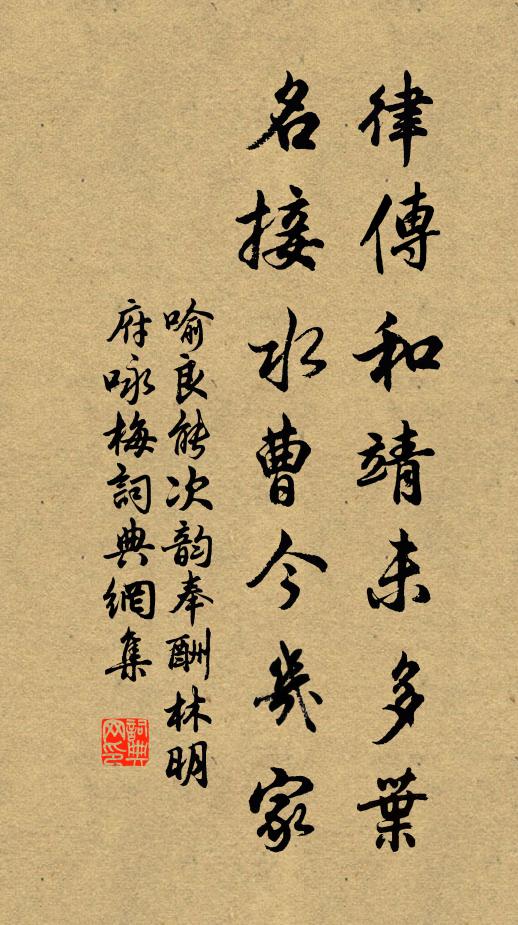 律傳和靖未多葉
名接水曹今幾家
喻良能次韵奉酬林明
府咏梅詞典網集
詞典网印